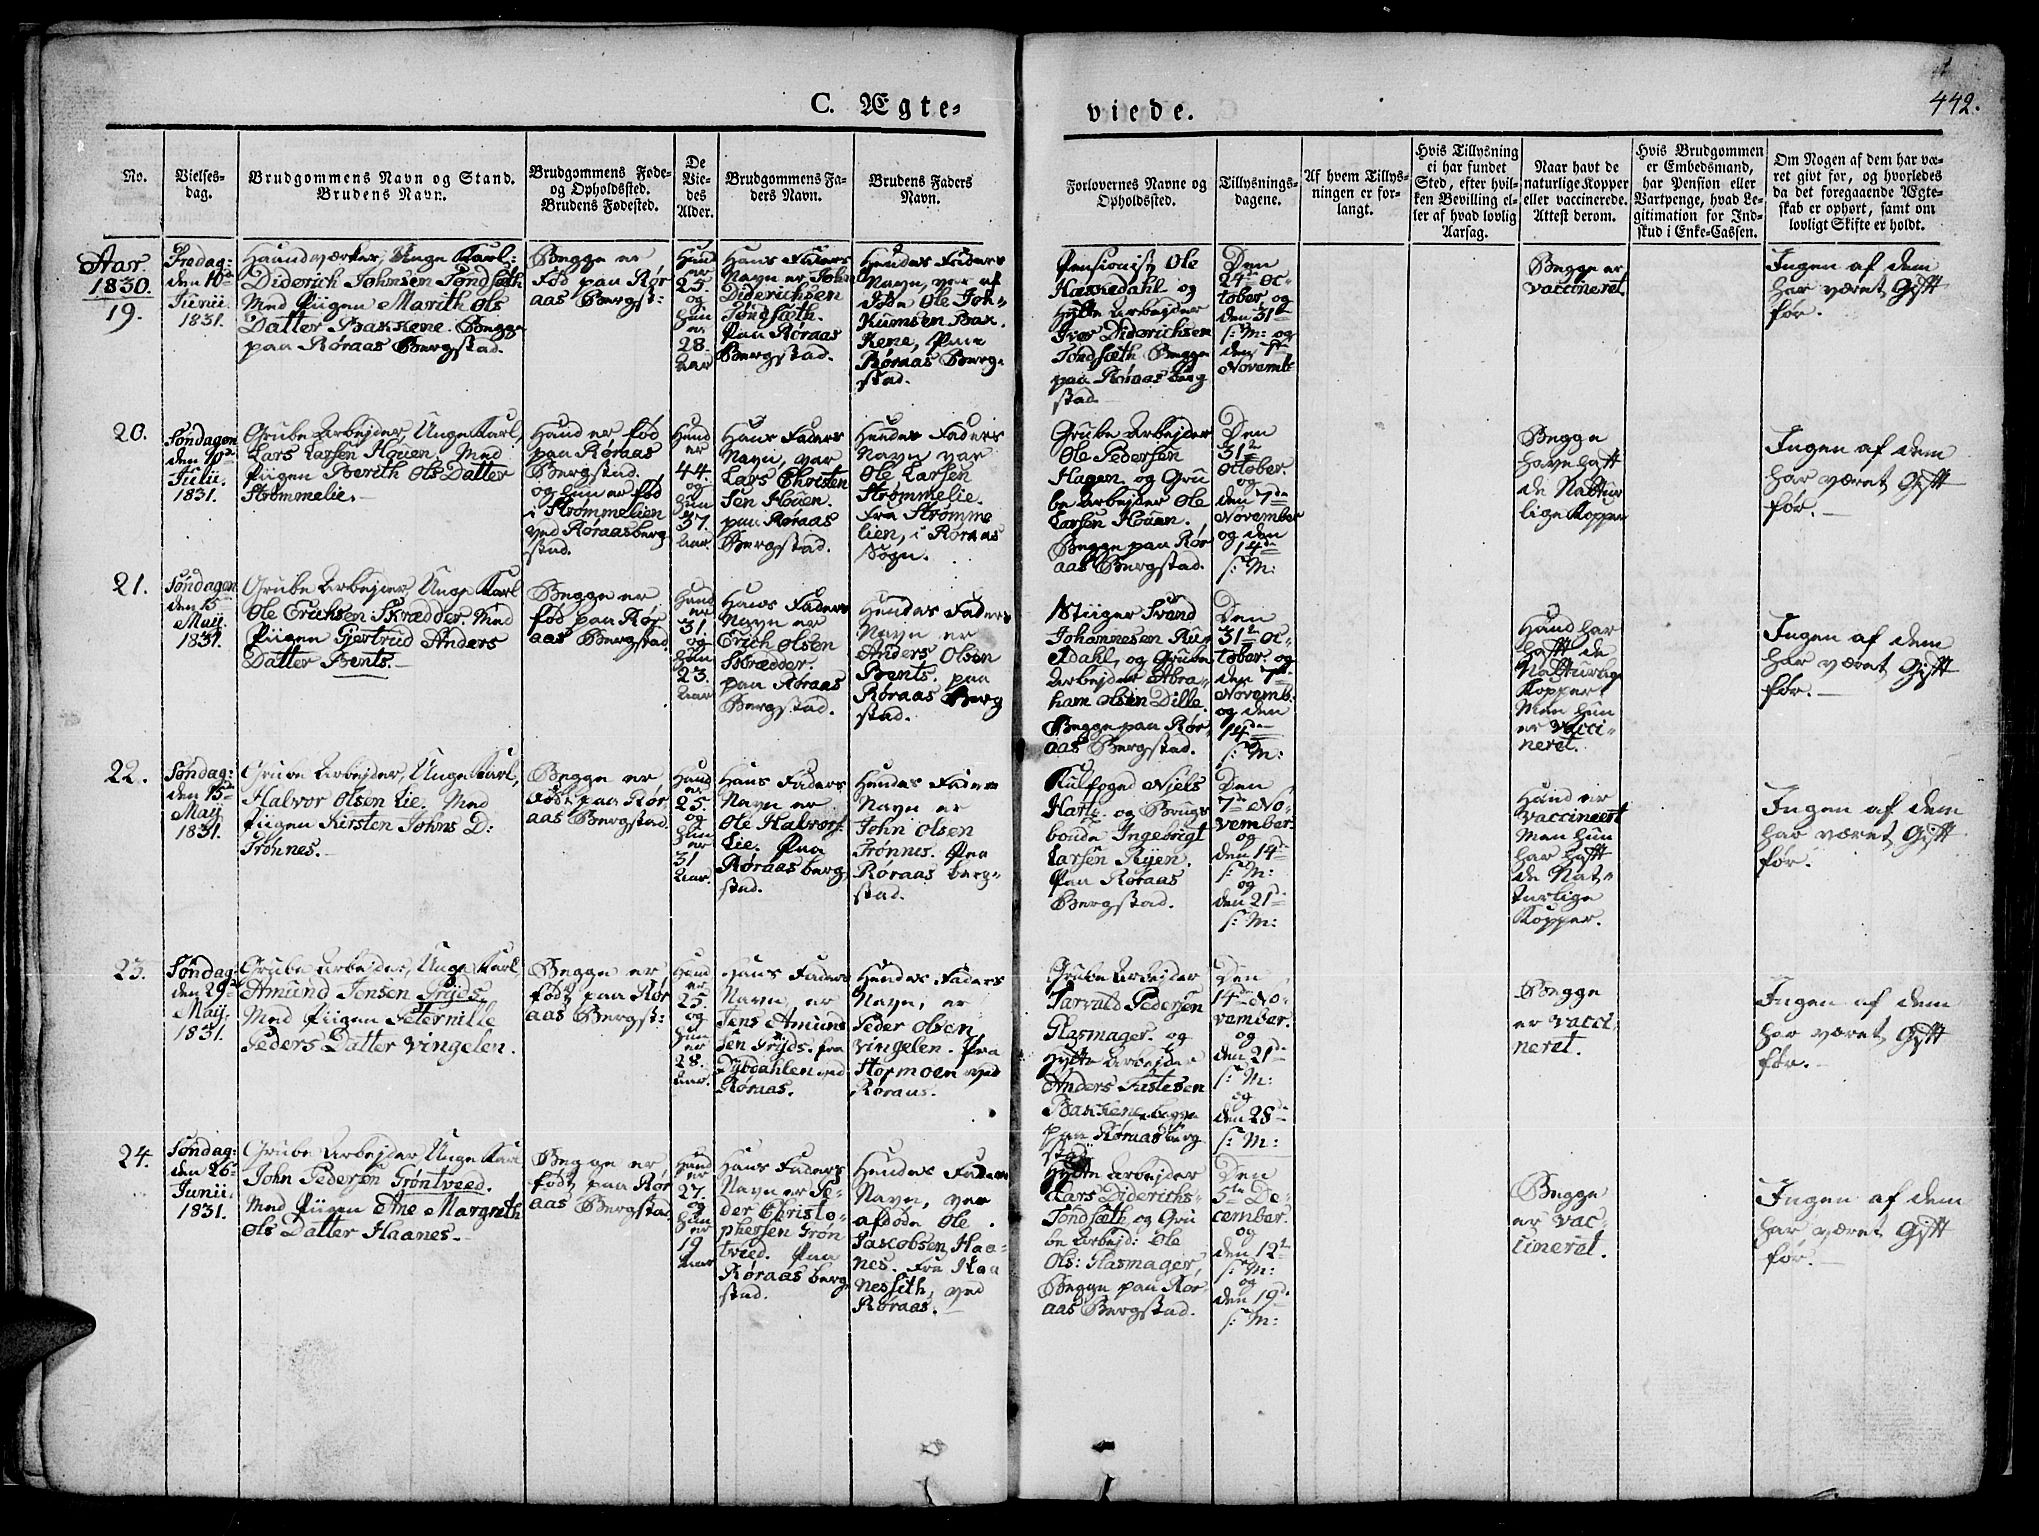 442.
C. Ægte-
viede.
No.
Vielses-
dag.
Brudgommens Navn og Stand.
Brudens Navn.
Brudgommens Føde-
og Opholdssted.
Brudens Fødested.
De
Vie-
des
Alder.
Brudgommens Fa-
ders Navn.
Brudens Faders
Navn.
Forlovernes Navne og
Opholdssted.
Tillysnings-
dagene.
Af hvem Tillys-
ningen er for-
langt.
Hvis Tillysning
ei har fundet
Sted, efter hvil-
ken Bevilling el-
ler af hvad lovlig
Aarsag.
Naar havt de
naturlige Kopper
eller vaccinerede.
Attest derom.
Hvis Brudgommen
er Embedsmand,
har Pension eller
Vartpenge, hvad Le-
gitimation for Ind-
skud i Enke-Cassen.
Om Nogen af dem har væ-
ret givt for, og hvorledes
da det foregaaende Ægte-
skab er ophørt, samt om
lovligt Skifte er holdt.
Aar.
1830.
19.
Fredag:
den 10de
Junii
1831.
Haandværker, Unge Karl:
Diderich Johnsen Tøndsæth
Med Piigen Marith Ols
Datter Bakkene. Begge
paa Røraas Bergstad.
Begge er
fød paa Rør
aas Bergst:
Hand
er
25.
og
Hun
er
28.
Aar
Hans Faders
Navn er John
Diderichsen
Tøndsæth.
Paa Røraas
Bergstad.
Hendes Faders
Navn, var af
døde Ole Jon-
Kumsen Bak-
Kene, Paa
Røraas Berg-
stad.
Pensionist Ole
Hækkedahl og
Hytte Arbejder
Iver Diderichsen
Tøndsæth Begge
paa Røraas Berg
stad.
Den
24de Oc-
tober, og
den 31te
s: M: og
den 7de
Novemb:
Begge er
vaccineret.
Ingen af dem
har været Gift
før.
20.
Søndagen
den 10de
Julii.
1831.
Grube Arbejder, Unge Karl,
Lars Larsen Houen, Med
Piigen Berith Ols Datter
Strømmelie.
Hand er fød
paa Røraas
Bergstad.
og hun er fød
i Strømmelien
ved Røraasberg
stad.
Hand
er
44.
og
Hun
37.
Aar.
Hans Faders
Navn, var
Lars Christen
sen Houen.
paa Røraas
Bergstad.
Hendes Faders
Navn var
Ole Larsen
Strømmelie.
Fra Strømme
lien, i Røraas
Sogn.
Grube Arbejder
Ole Pedersen
Hagen, og Gru
be Arbejder Ole
Larsen Houen.
Begge paa Rør
aas Bergstad.
Den
31te
October.
og
den 7de
November
og den
14de
s: M:
Begge
have haft
de Nattur
lige Kopper
Ingen af dem
har været Gift
før.
21.
Søndagen
den 15de
Maij
1831.
Grube Arbejder, Unge Karl
Ole Erichsen Skrædder. Med
Piigen Gjertrud Anders
Datter Bents.
Begge er
fød paa Rør
aas Bergstad.
Hand
er
31
og
Hun
23.
Aar
Hans Faders
Navn er
Erich Olsen
Skrædder.
paa Røraas
Bergstad.
Hendes Faders
Navn er
Anders Olsen
Bents. paa
Røraas Berg
stad.
Stiiger Svend
Johannesen Rug
dahl, og Grube
Arbejder Abra-
ham Olsen Dille.
Begge paa Rør-
aas Bergstad.
Den
31te Oc-
tober. og
den 7de
Novemb.
og den
14de
s: M:
Hand har
haft de
Natturlige
Kopper
Men hun
er vacci-
neret.
Ingen af dem
har været Gift
før.
22.
Søndag:
den 15de
Maij
1831.
Grube Arbejder, Unge Karl,
Halvor Olsen Lie. Med
Piigen Kirsten Johns D:
Trønnes.
Begge er
født paa Rør
aas Bergstad.
Hand
er
25.
og
Hun
er
31
Aar.
Hans Faders
Navn er
Ole Halvors:
Lie. Paa
Røraas berg
stad.
Hendes Faders
Navn er
John Olsen
Trønnes. Paa
Røraas berg-
stad.
Kulfoged Niels
Hartz. og Brugs
bonde Ingebrigt
Larsen Ryen.
Paa Røraas
Bergstad.
Den
7de No-
vember:
og
den 14de
s: M:
og
den 21de
s: M:
Hand er
vaccineert
Men hun
har haft
de Nat-
turlige
Kopper.
Ingen af dem
har været Gift
før.
23.
Søndag:
den 29de
Maij.
1831.
Grube Arbejder, Unge Karl
Amund Jensen Gryds.
Med Piigen Peternille
Peders Datter Vingelen.
Begge er
født paa Rør
aas Bergst:
Hand
er
25.
og
Hun
er
28.
Aar.
Hans Faders
Navn, er
Jens Amund
sen Gryds. fra
ved
Røraas.
Hendes Faders
Navn, er
Peder Olsen
Vingelen. Paa
Stormoen ved
Røraas.
Grube Arbejder
Tarvald Pedersen
Glasmager. og
Hytte Arbejder
Anders
Bakkene. begge
paa Røraas berg
stad
Den
14de No-
vember.
og
den 21de
s: M:
og
den 28de
s: M:
Begge
er vacci
neret.
Ingen af dem
har været Gift
før.
24.
Søndag:
den 26de
Junii.
1831.
Grube Arbejder, Unge Karl
John Pedersen Grøntveed.
Med Piigen Ane Margreth
Ols Datter Haanes.
Begge er
født paa Rør
aas Bergstad
Hand
er
27.
og
Hun
er
19
Aar
Hans Faders
Navn er Pe-
der Christo-
phersen Grøn
tvæd. Paa
Røraas berg
stad.
Hendes Faders
Navn, var
afdøde Ole
Jacobsen Haa-
nes. Fra Haa
nessæth, ved
Røraas.
Hytte Arbejder
Lars Diderichs-
Tøndsæth, og Gru
be Arbejd: Ole
Ols: Glasmager,
Begge paa Rør
aas Bergstad.
Den
5te De-
cember.
og
den 12te
s: M:
og
den 19de
s: M:
Begge
er vac-
cineret.
Ingen af dem
har været Gift
før.